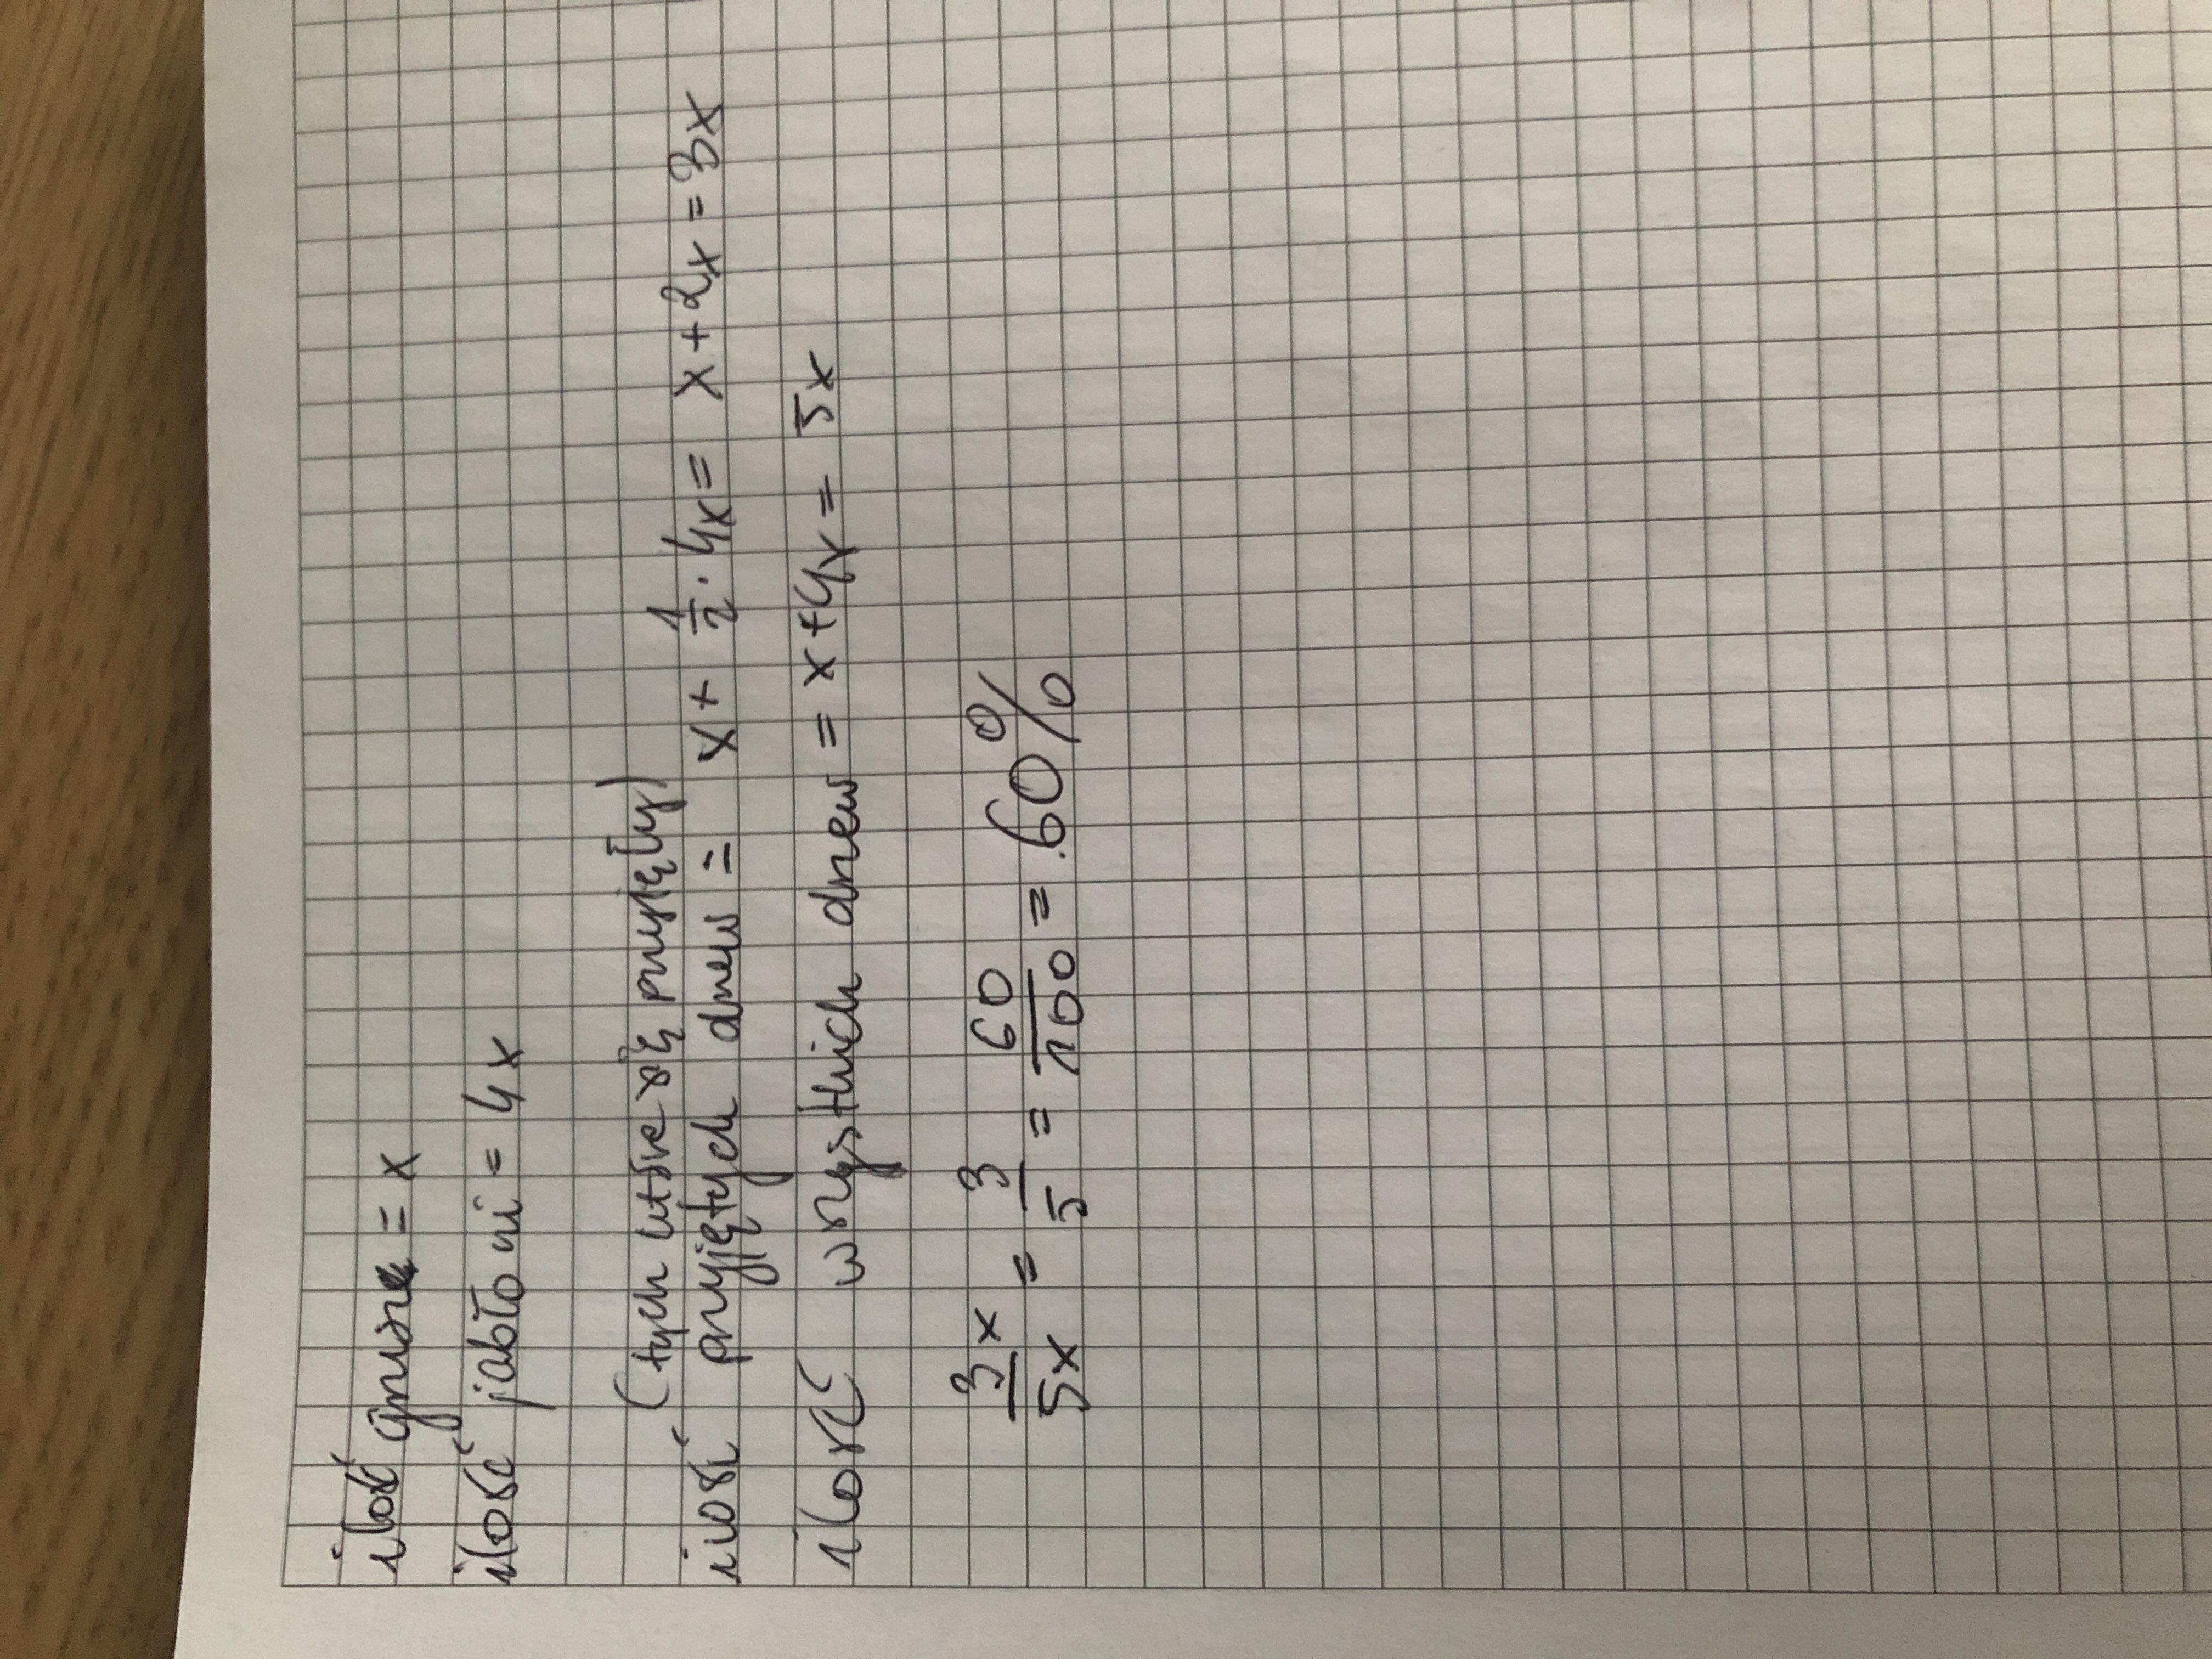 ilość grusz = x
ilość jabłoni = 4x
(tych które się przyjęły)
ilość przyjętych drzew = x + 1/2 · 4x = x + 2x = 3x
ilość wszystkich drzew = x + 4x = 5x
3x/5x = 3/5 = 60/100 = 60%